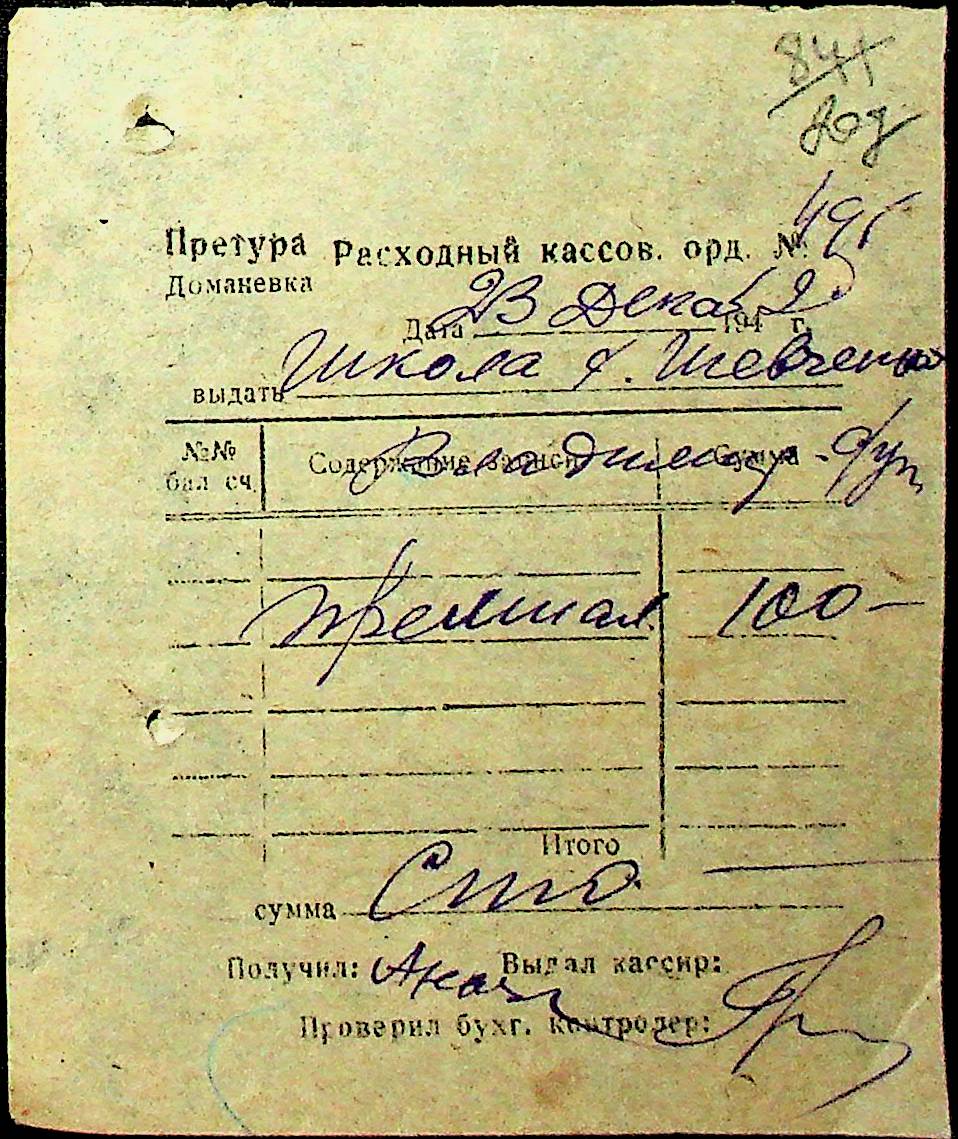 841
Претура Расходный кассов. орд. №
Доманевка
Дата 23 Декаб 194 2 г.
выдать Школа х. Шевченко
№№ бал сч. Содержание записи Сумма
Владимир
100 —
Итого
сумма Сто
Получил: Выдал кассир:
Проверил бухг. контролер: